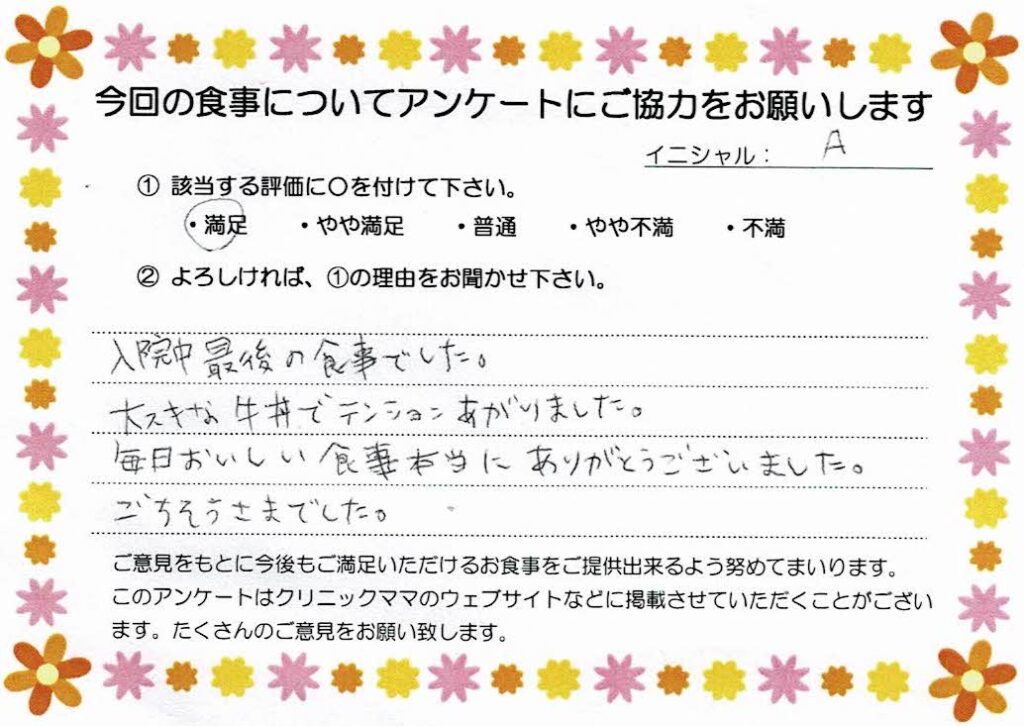 今回の食事についてアンケートにご協力をお願いします
イニシャル： A
① 該当する評価に〇を付けて下さい。
・満足 ・やや満足 ・普通 ・やや不満 ・不満
② よろしければ、①の理由をお聞かせ下さい。
入院中最後の食事でした。
大スキな牛丼でテンションあがりました。
毎日おいしい食事本当にありがとうございました。
ごちそうさまでした。
ご意見をもとに今後もご満足いただけるお食事をご提供出来るよう努めてまいります。
このアンケートはクリニックママのウェブサイトなどに掲載させていただくことがござい
ます。たくさんのご意見をお願い致します。